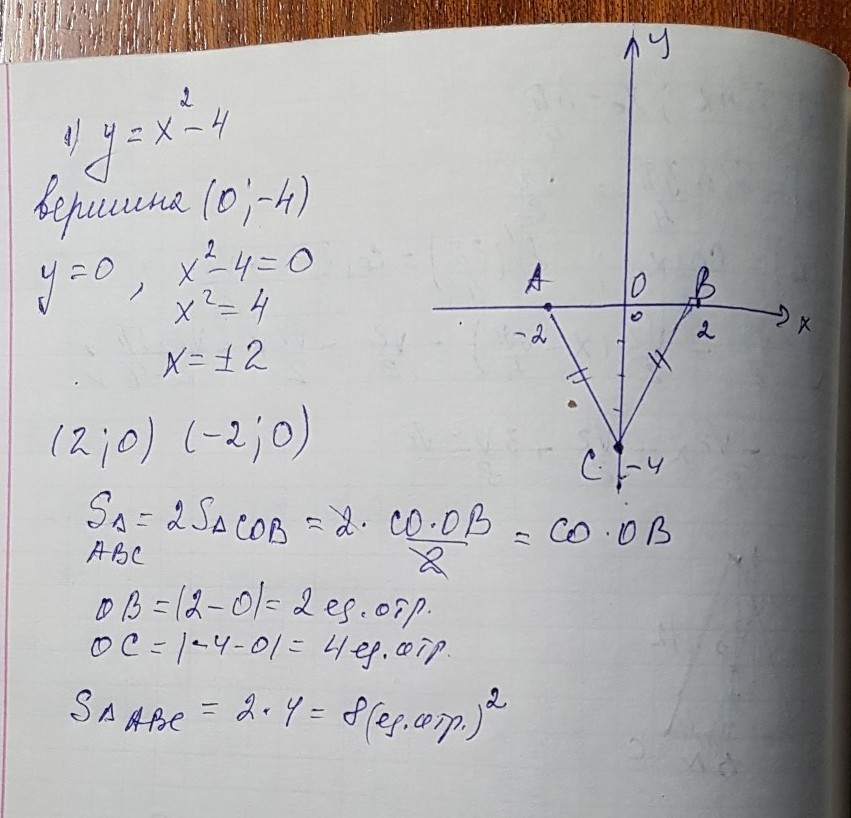 1) y = x² - 4
вершина (0; -4)
y = 0, x² - 4 = 0
x² = 4
x = ±2
(2; 0) (-2; 0)
y
A O B
-2 0 2 x
C -4
S△ABC = 2S△COB = 2 · CO·OB/2 = CO · OB
OB = |2 - 0| = 2 ед. отр.
OC = |-4 - 0| = 4 ед. отр.
S△ABC = 2 · 4 = 8 (ед. отр.)²